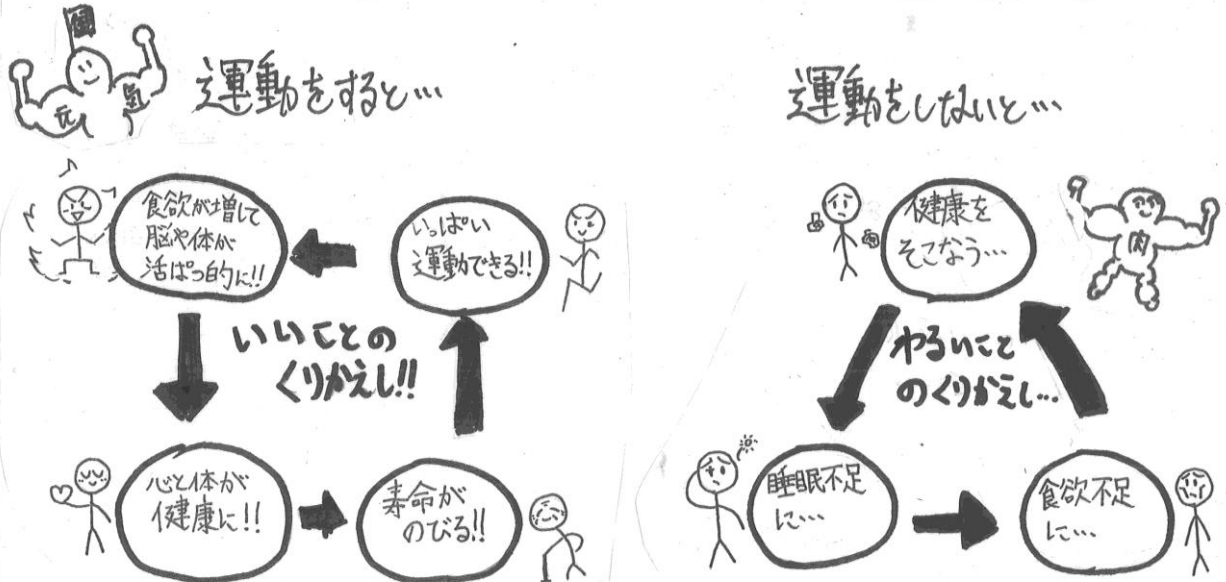 健
元
氣
運動をすると…
食欲が増して
脳や体が
活ぱつ的に!!
いっぱい
運動できる!!
いいことの
くりかえし!!
心と体が
健康に!!
寿命が
のびる!!
運動をしないと…
健康を
そこなう…
肉
わるいこと
のくりかえし…
睡眠不足
に…
食欲不足
に…